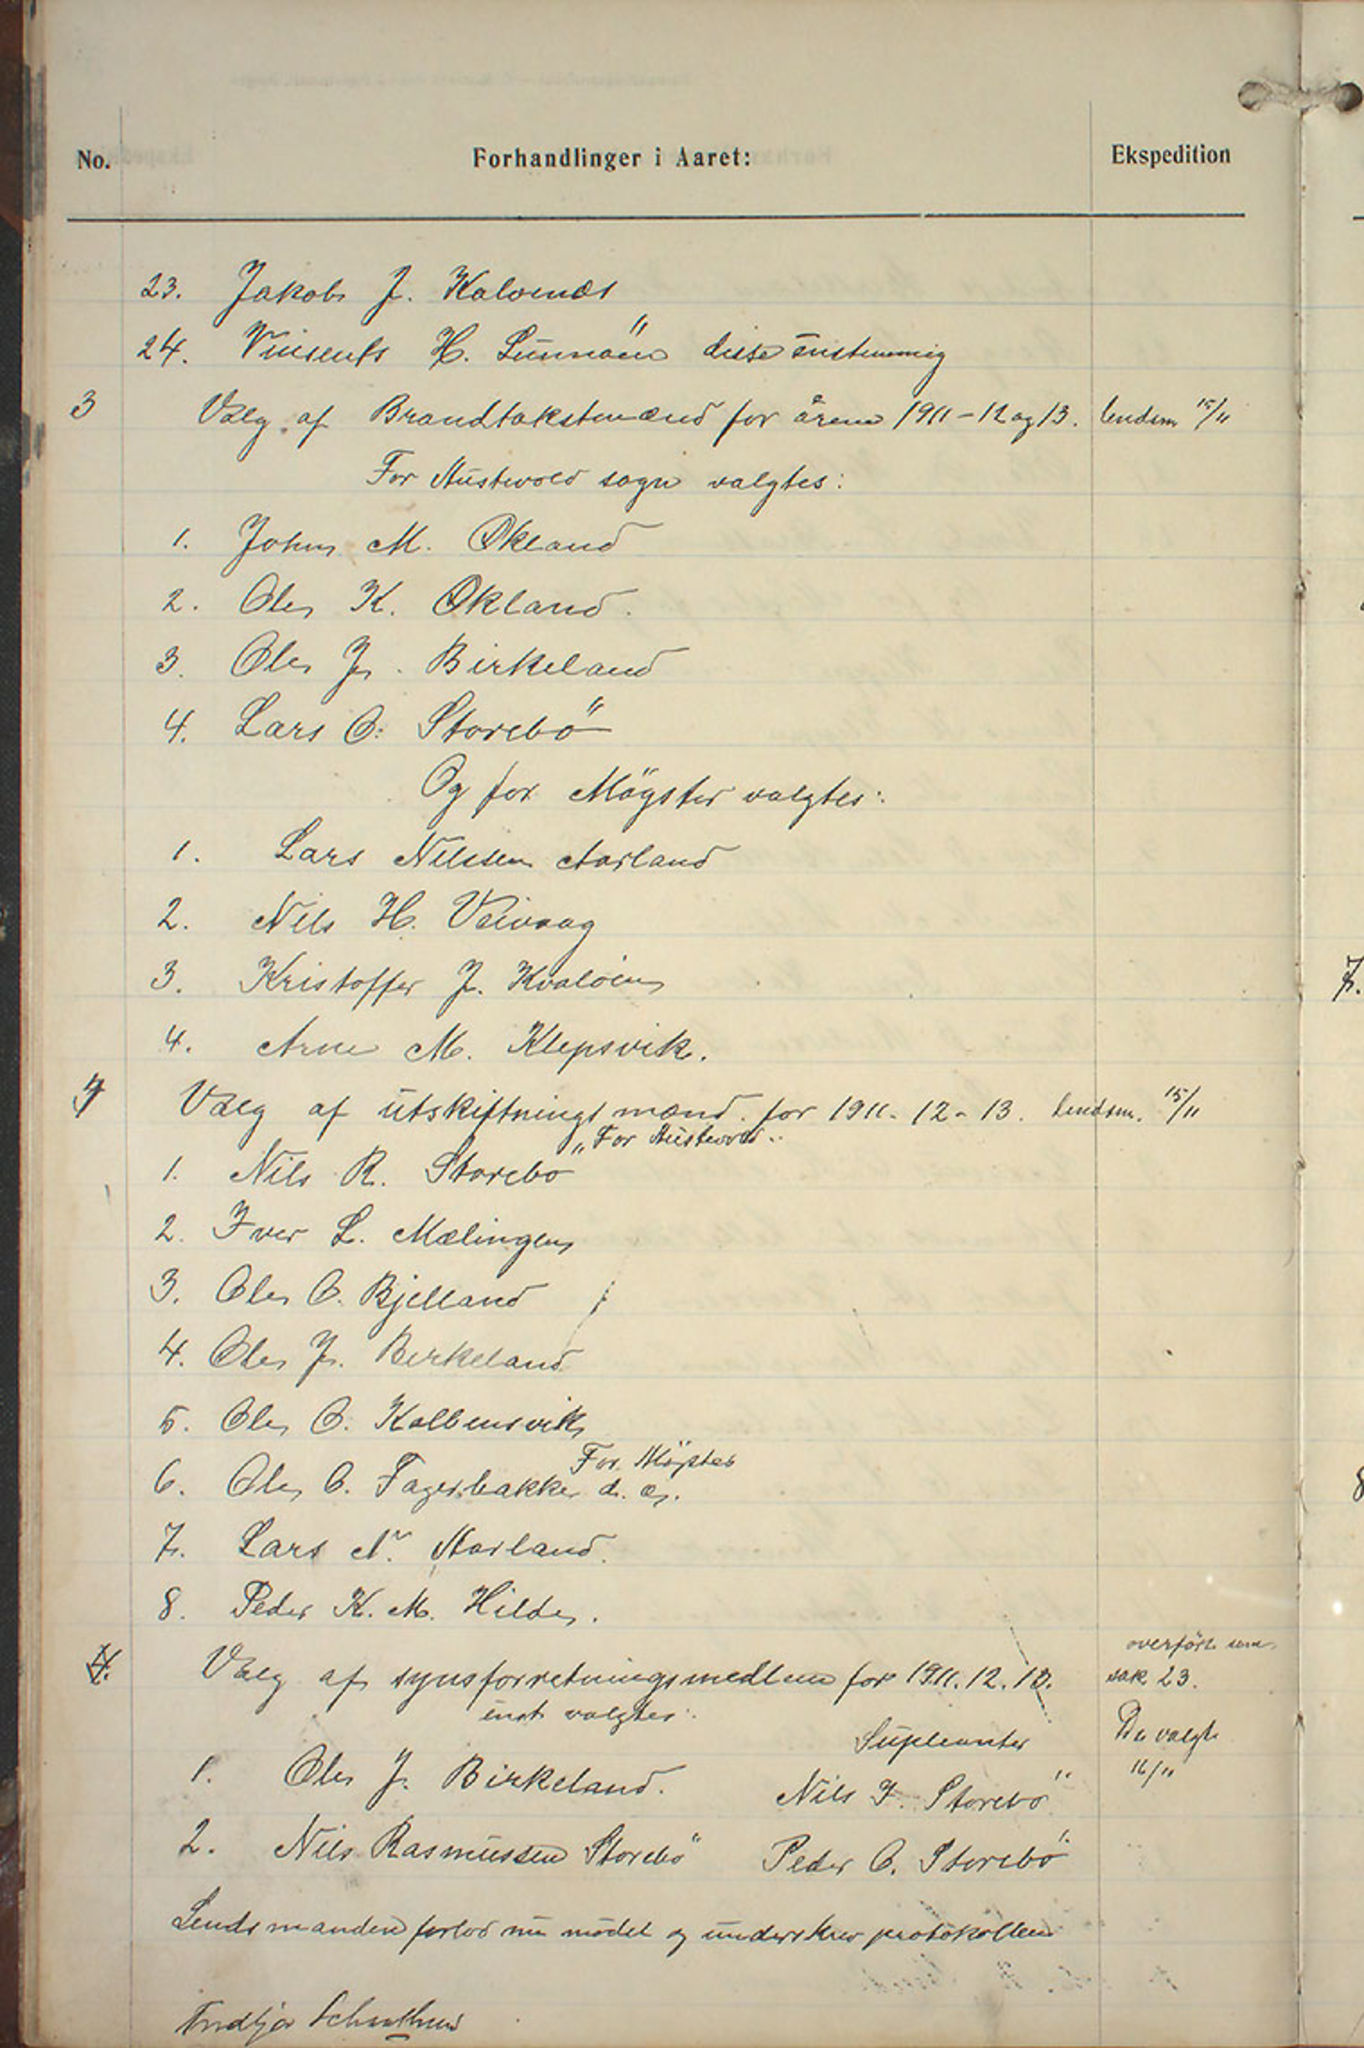 No. Forhandlinger i Aaret: Ekspedition
23. Jakob J. Kalvenes
24. Vinsents H. Lunnöen disse enstemmig
3 Valg af Brandtakstmænd for årene 1911-12 og 13. lendsm 15/11
For Austevold sogn valgtes:
1. Johns M. Økland
2. Ole K. Økland.
3. Ole J. Birkeland
4. Lars O. Storebö
Og for Mögster valgtes:
1. Lars Nilssen Aarland
2. Nils H. Veivaag
3. Kristoffer J. Kvalöen
4. Arne M. Klepsvik.
4 Valg af utskiftningsmænd for 1911-12-13. lendsm. 15/11
"For Austevold"
1. Nils R. Storebö
2. Iver L. Mælingen
3. Ole O. Bjelland
4. Ole J. Berkeland
5. Ole O. Kolbensvik
For Mögster
6. Ole O. Fagerbakke d. æ.
7. Lars N. Aarland.
8. Peder K. M. Hilde.
overfört som
4. Valg af synsforretningsmedlem for 1911.12.13. sak 23.
enst valgtes:
Supleanter De valgte
1. Ole J. Birkeland. Nils I. Storebö 16/11
2. Nils Rasmussen Storebö Peder O. Storebö
Lendsmanden forlod nu mödet og underskrev protokollen